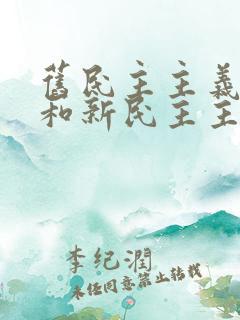 舊民主主義
和新民主主
李纪潤
未经同意禁止转载